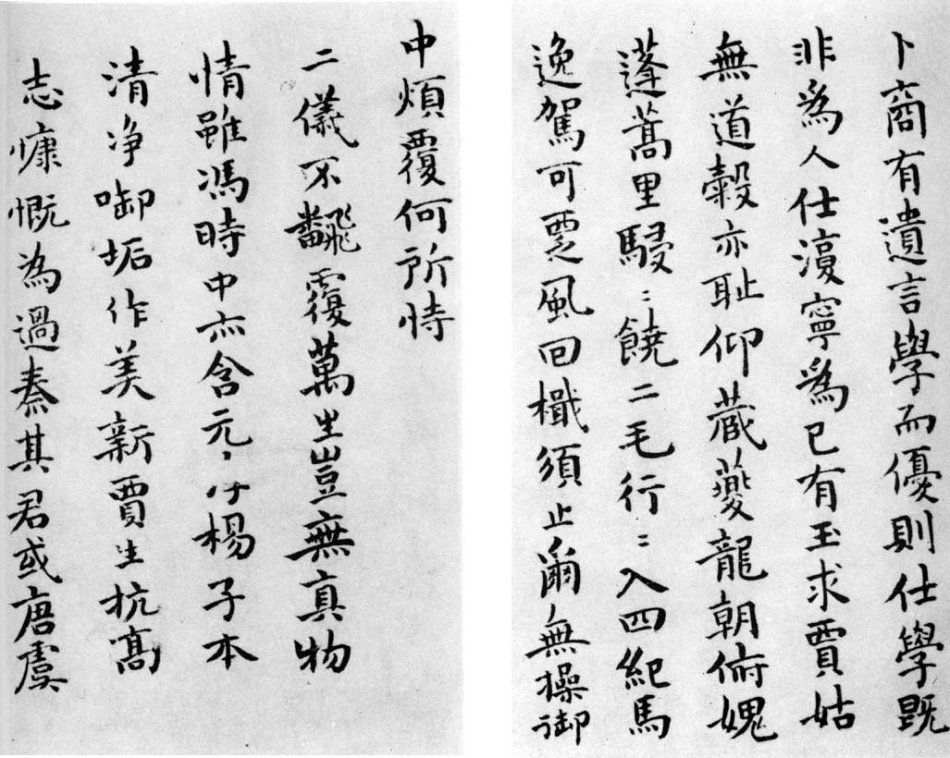 卜商有遺言學而優則仕學既
非為人仕濅寧為已有玉求賈姑
無道穀亦耻仰蔵夔龍朝俯媿
蓬蒿里駸〻饒二毛行〻入四紀馬
逸駕可覂風回檝須止爾無操御
中煩覆何所恃
二儀不飜覆萬生豈無真物
情雖馮時中亦含元〻楊子本
清净啣垢作美新賈生抗髙
志慷慨為過秦其君或唐虞